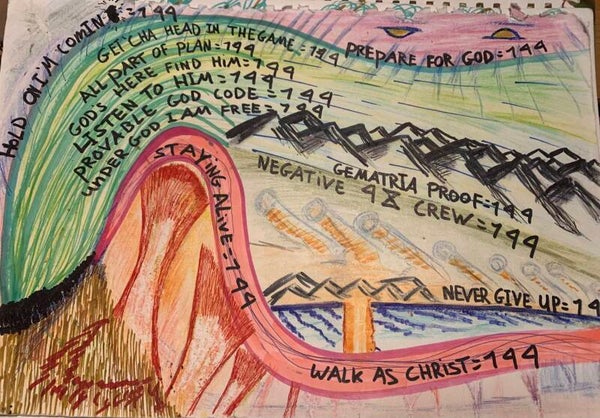 HOLD ON I'M COMIN =144
GETCHA HEAD IN THE GAME=144
ALL PART OF PLAN=144
GODS HERE FIND HIM=144
LISTEN TO HIM=144
PROVABLE GOD CODE=144
UNDER GOD I AM FREE=144
PREPARE FOR GOD=144
STAYING ALIVE=144
GEMATRIA PROOF=144
NEGATIVE 48 CREW=144
NEVER GIVE UP=14
WALK AS CHRIST=144